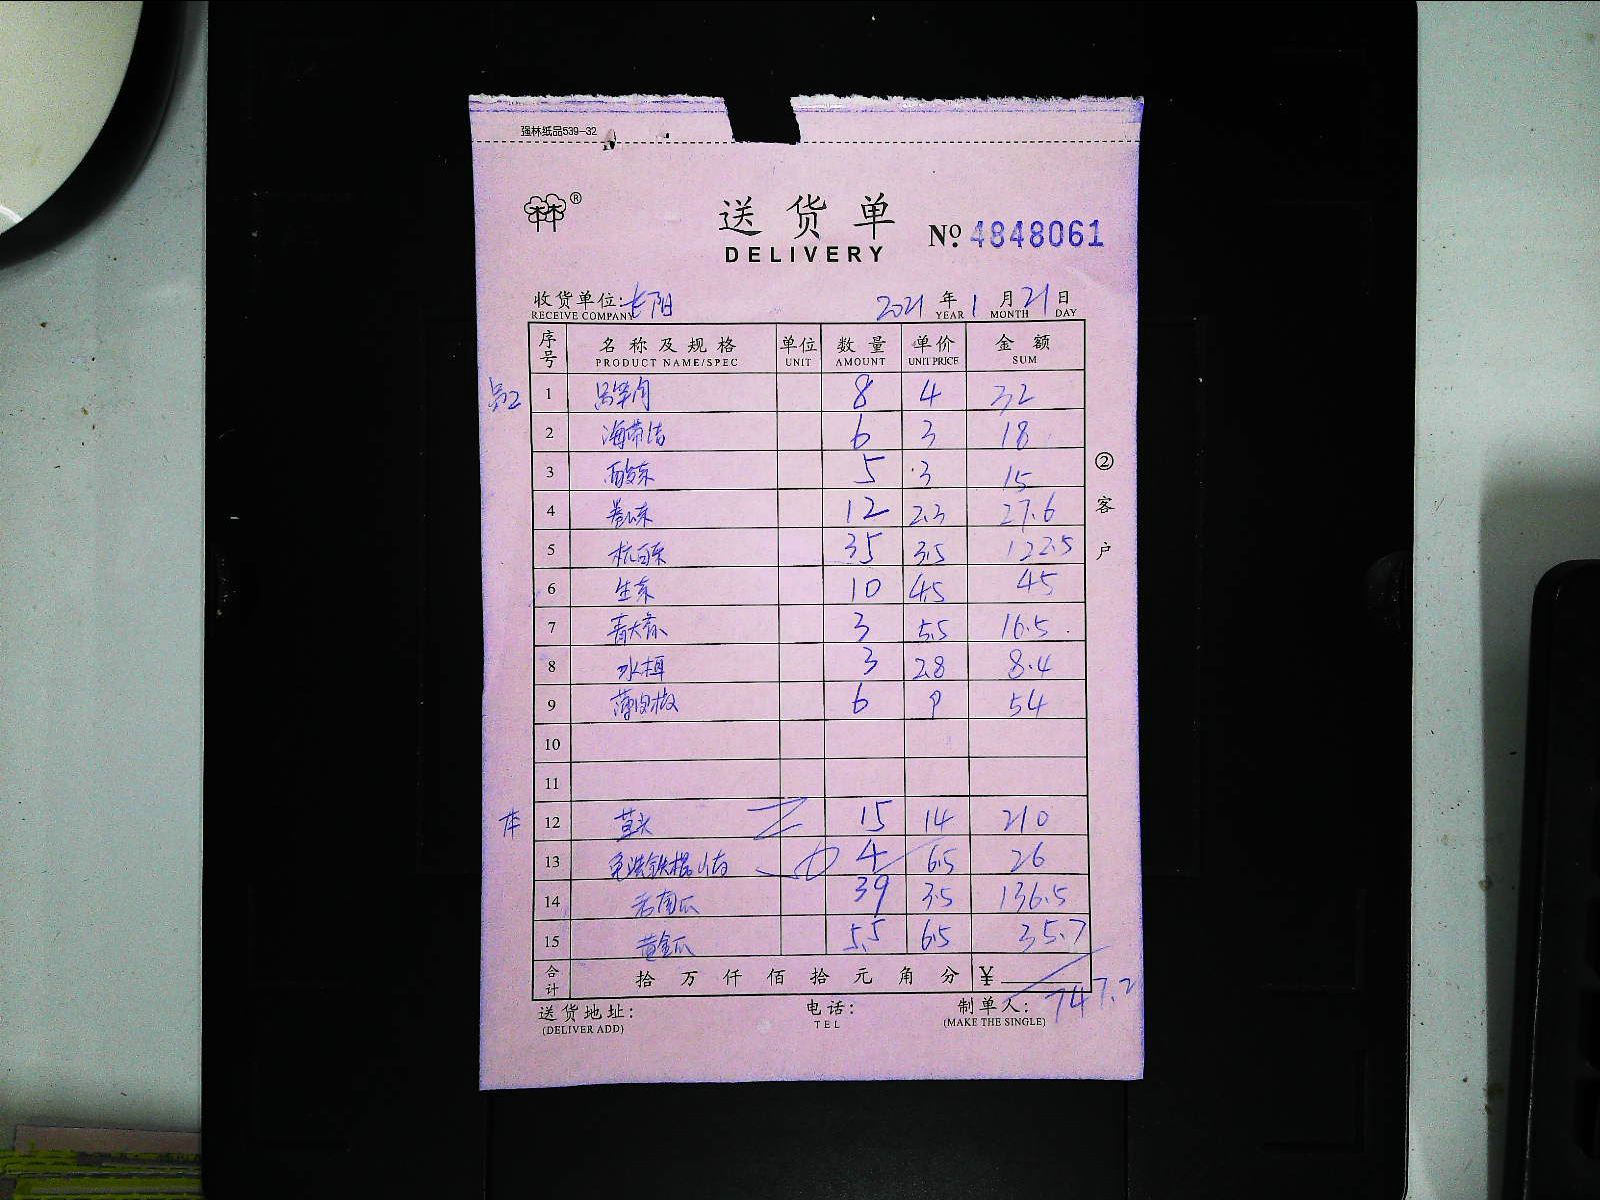 强林纸品539-32
林®
送货单 № 4848061
DELIVERY
收货单位: 长阳 2021 年 1 月 21 日
RECEIVE COMPANY YEAR MONTH DAY
序号 名称及规格 单位 数量 单价 金额
PRODUCT NAME/SPEC UNIT AMOUNT UNIT PRICE SUM
员工 1 8 4 32
2 海带结 6 3 18
3 酸菜 5 3 15
4 卷心菜 12 2.3 27.6
5 杭白菜 35 3.5 122.5
6 生菜 10 4.5 45
7 青大蒜 3 5.5 16.5
8 水 3 2.8 8.4
9 薄肉椒 6 9 54
10
11
库 12 15 14 210
13 免洗铁棍山药 4 6.5 26
14 老南瓜 39 3.5 136.5
15 黄金瓜 5.5 6.5 35.7
合计 拾 万 仟 佰 拾 元 角 分 ¥ 747.2
送货地址: 电话: 制单人:
(DELIVER ADD) TEL (MAKE THE SINGLE)
②客户